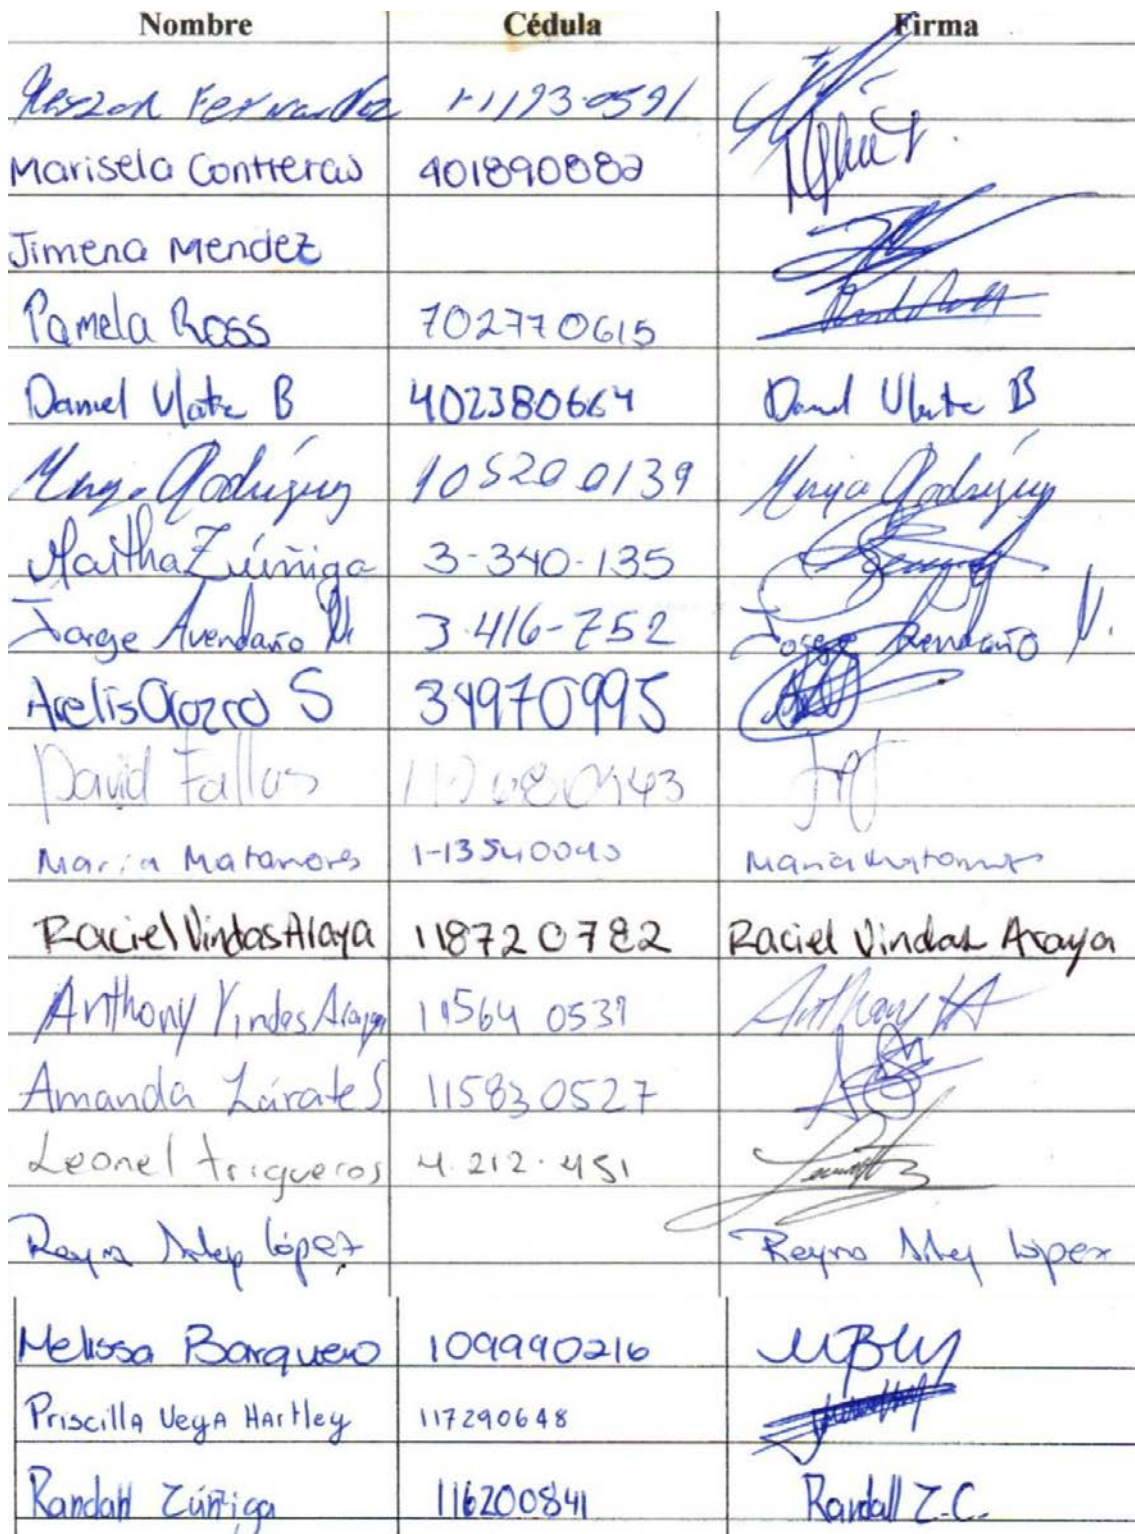 Nombre Cédula Firma
Fernandez 1-1193-0591
Marisela Contreras 401890882
Jimena Mendez
Pamela Ross 702770615
Daniel Ulate B 402380664 Daniel Ulate B
Rodríguez 105200139 Rodríguez
Martha Zúñiga 3-340-135
Jorge Avendaño N. 3-416-752 Jorge Avendaño N.
Arelis Orozco S 34970995
David Fallas
Maria Matamoros Maria Matamoros
Raciel Vindas Araya 118720782 Raciel Vindas Araya
Anthony Vindas Araya 11564 0537 Anthony VA
Amanda Zárate S 115830527
Leonel trigueros 4.212.451
Reyna López Reyna López
Melissa Barquero 109990216 MB
Priscilla Vega Hartley 117290648
Randall Zúñiga 116200841 Randall Z.C.